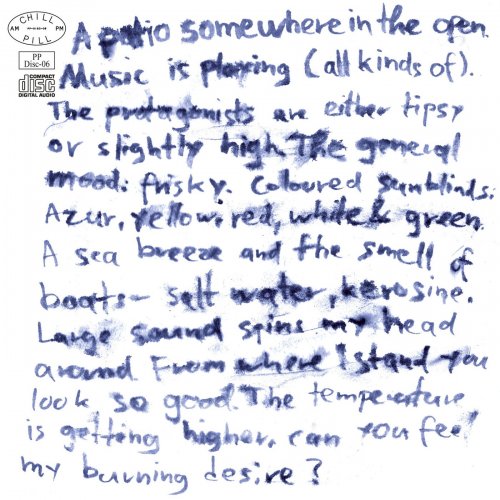 CHILL PILL
AM PM
PP
Disc-06
COMPACT
disc
DIGITAL AUDIO
A patio somewhere in the open.
Music is playing (all kinds of).
The protagonists are either tipsy
or slightly high. The general
mood: frisky. Coloured sunblinds:
Azur, yellow, red, white & green.
A sea breeze and the smell of
boats - salt water, kerosine.
Large sound spins my head
around. From where I stand you
look so good. The temperature
is getting higher, can you feel
my burning desire?